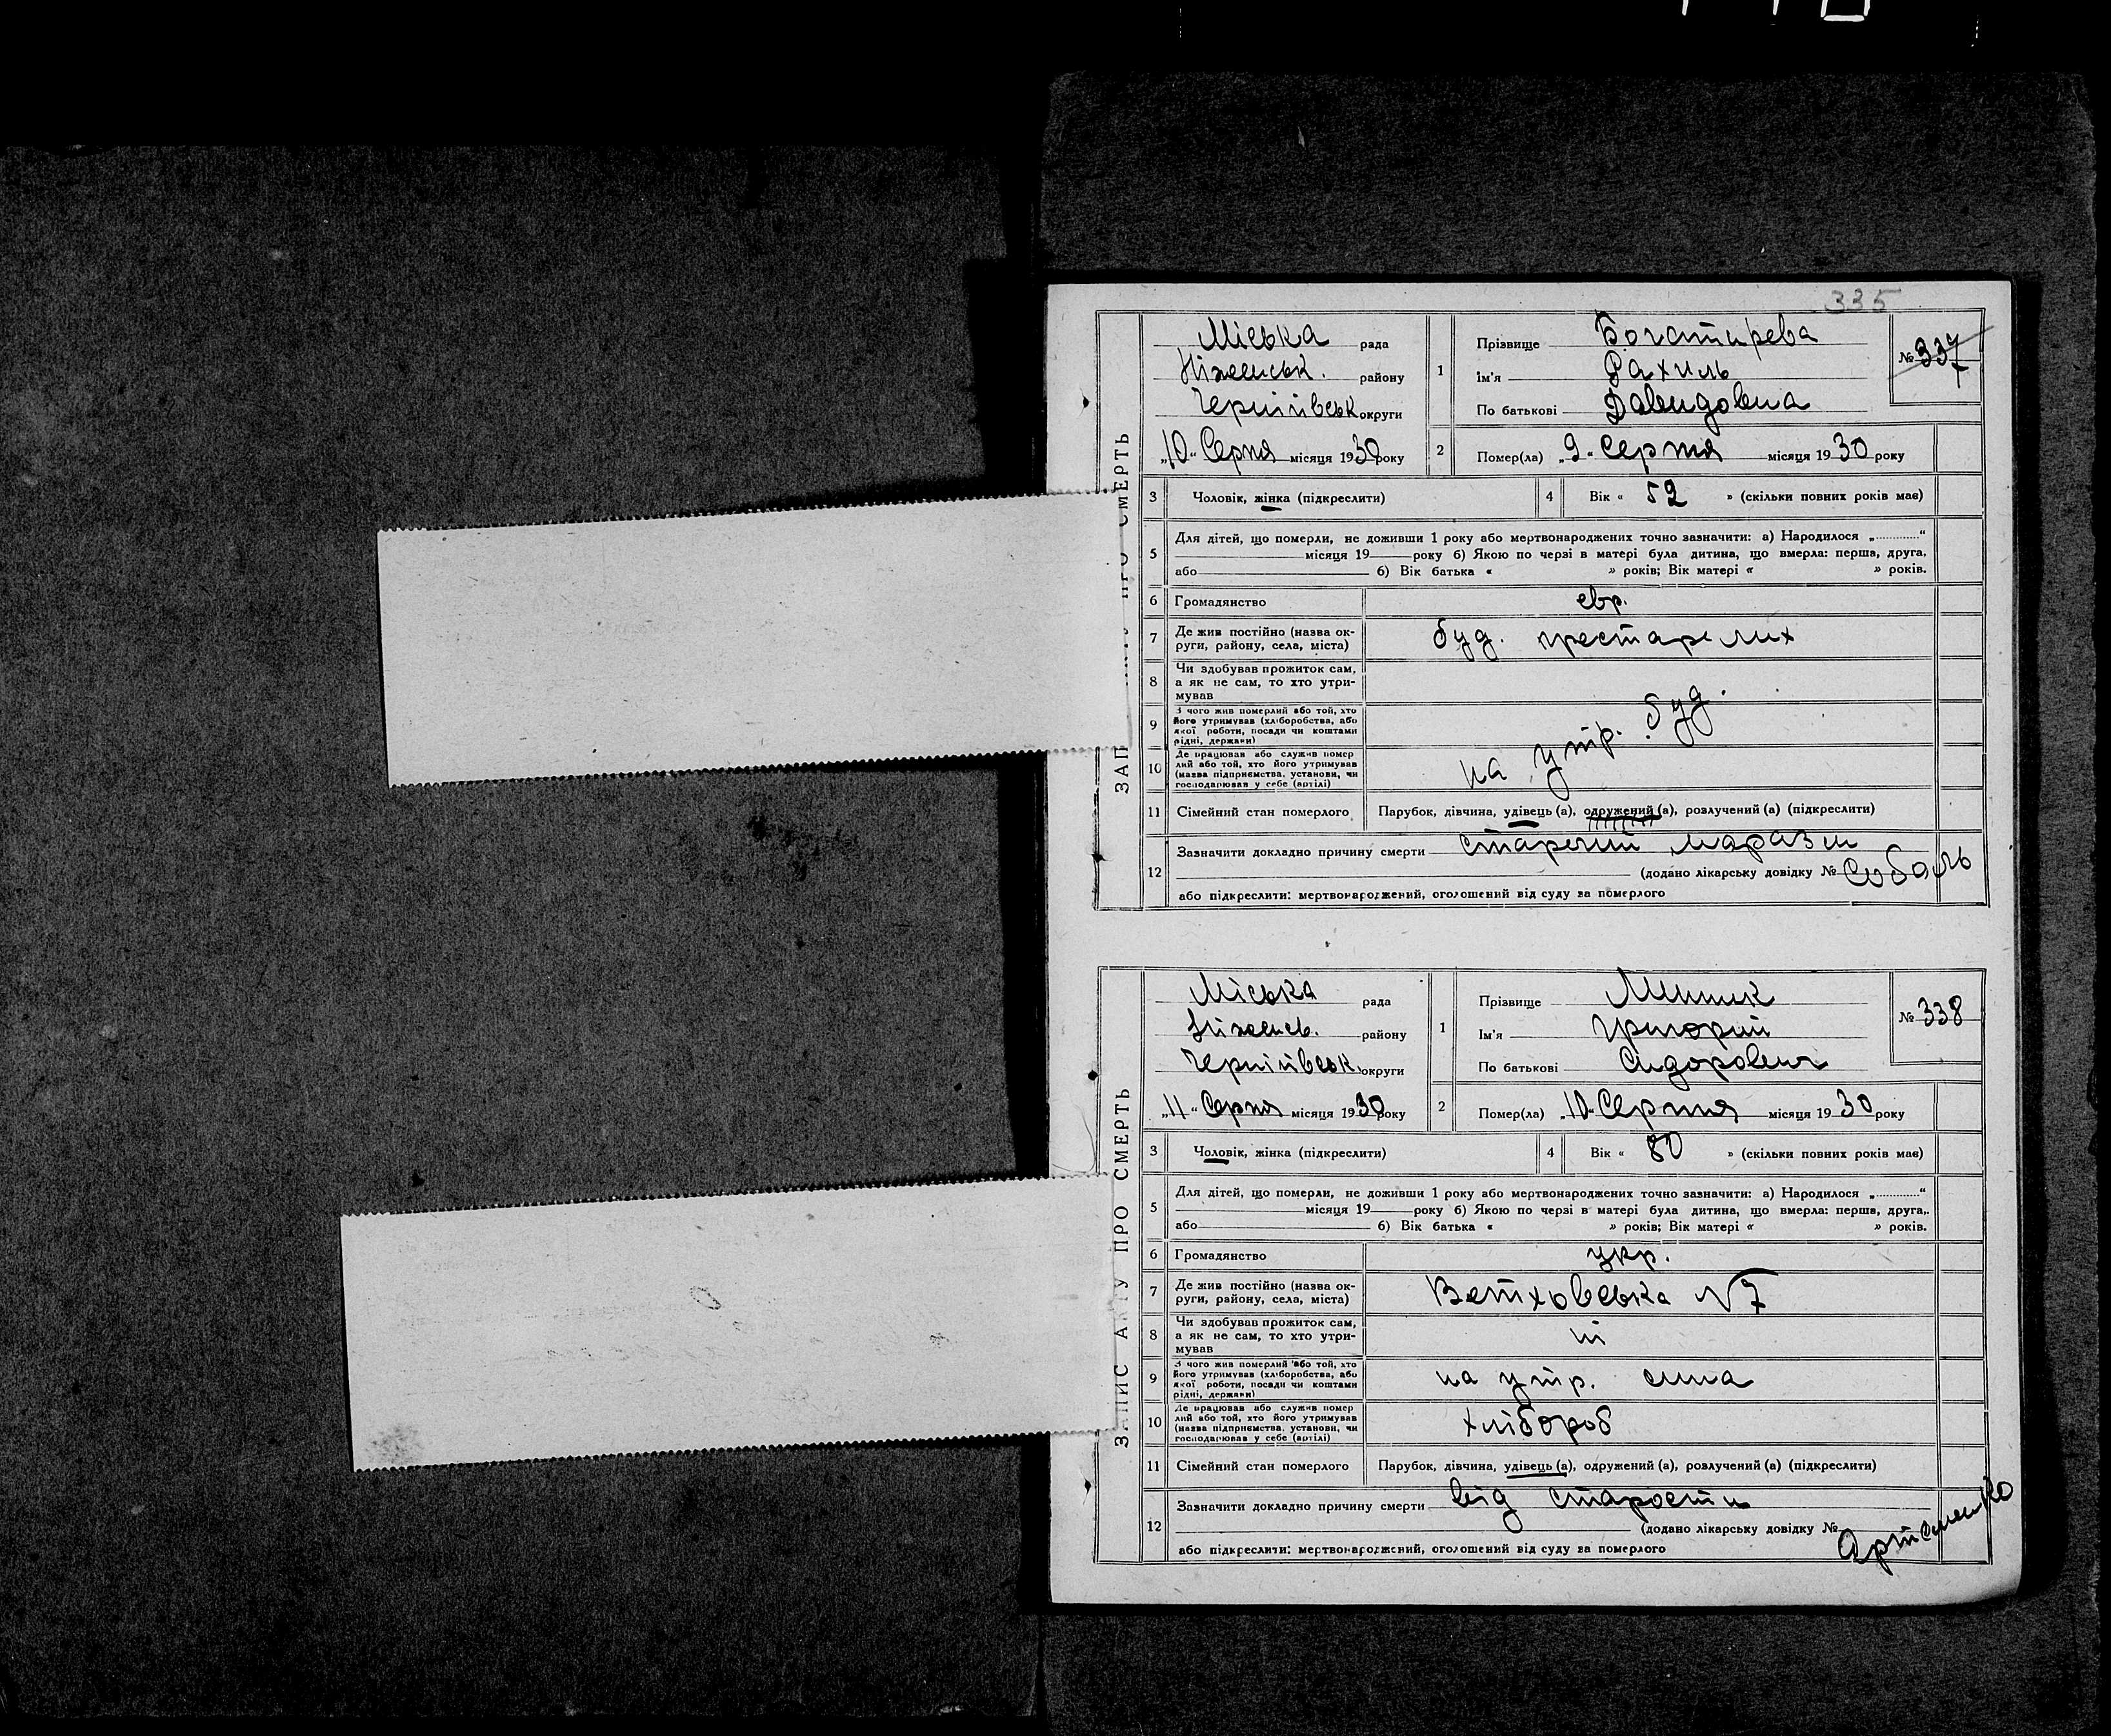 335
ЗАПИС АКТУ ПРО СМЕРТЬ
Міська рада
Ніженськ. району
Чернігівськ округи
„10“ Серпня місяця 1930 року
1 Прізвище Богатирева
Ім'я Рахиль
По батькові Давидовна
№ 337
2 Помер(ла) „9“ Серпня місяця 1930 року
3 Чоловік, жінка (підкреслити)
4 Вік « 52 » (скільки повних років мав)
5 Для дітей, що померли, не доживши 1 року або мертвонароджених точно зазначити: а) Народилося „ “
місяця 19 року б) Якою по черзі в матері була дитина, що вмерла: перша, друга,
або б) Вік батька « » років; Вік матері « » років.
6 Громадянство евр.
7 Де жив постійно (назва ок-
руги, району, села, міста) буд. престарелих
8 Чи здобував прожиток сам,
а як не сам, то хто утри-
мував
9 З чого жив померлий або той, хто
його утримував (хліборобства, або
якої роботи, посади чи коштами
рідні, держави)
на утр. буд.
10 Де працював або служив помер
лий або той, хто його утримував
(назва підприємства, установи, чи
господарював у себе (артілі)
11 Сімейний стан померлого Парубок, дівчина, удівець (а), одружений (а), розлучений (а) (підкреслити)
12 Зазначити докладно причину смерти старечий маразм
(додано лікарську довідку № Соболь
або підкреслити: мертвонароджений, оголошений від суду за померлого
ЗАПИС АКТУ ПРО СМЕРТЬ
Міська рада
Ніженсь. району
Чернігівськ. округи
„11“ Серпня місяця 1930 року
1 Прізвище
Ім'я Григорий
По батькові Сидорович
№ 338
2 Помер(ла) „10“ Серпня місяця 1930 року
3 Чоловік, жінка (підкреслити)
4 Вік « 80 » (скільки повних років мав)
5 Для дітей, що померли, не доживши 1 року або мертвонароджених точно зазначити: а) Народилося „ “
місяця 19 року б) Якою по черзі в матері була дитина, що вмерла: перша, друга,
або б) Вік батька « » років; Вік матері « » років.
6 Громадянство укр.
7 Де жив постійно (назва ок-
руги, району, села, міста) Ветховська №7
8 Чи здобував прожиток сам,
а як не сам, то хто утри-
мував ні
9 З чого жив померлий або той, хто
його утримував (хліборобства, або
якої роботи, посади чи коштами
рідні, держави) на утр. сина
10 Де працював або служив помер
лий або той, хто його утримував
(назва підприємства, установи, чи
господарював у себе (артілі) хлібороб
11 Сімейний стан померлого Парубок, дівчина, удівець (а), одружений (а), розлучений (а) (підкреслити)
12 Зазначити докладно причину смерти від старости
(додано лікарську довідку № Артеменко
або підкреслити: мертвонароджений, оголошений від суду за померлого